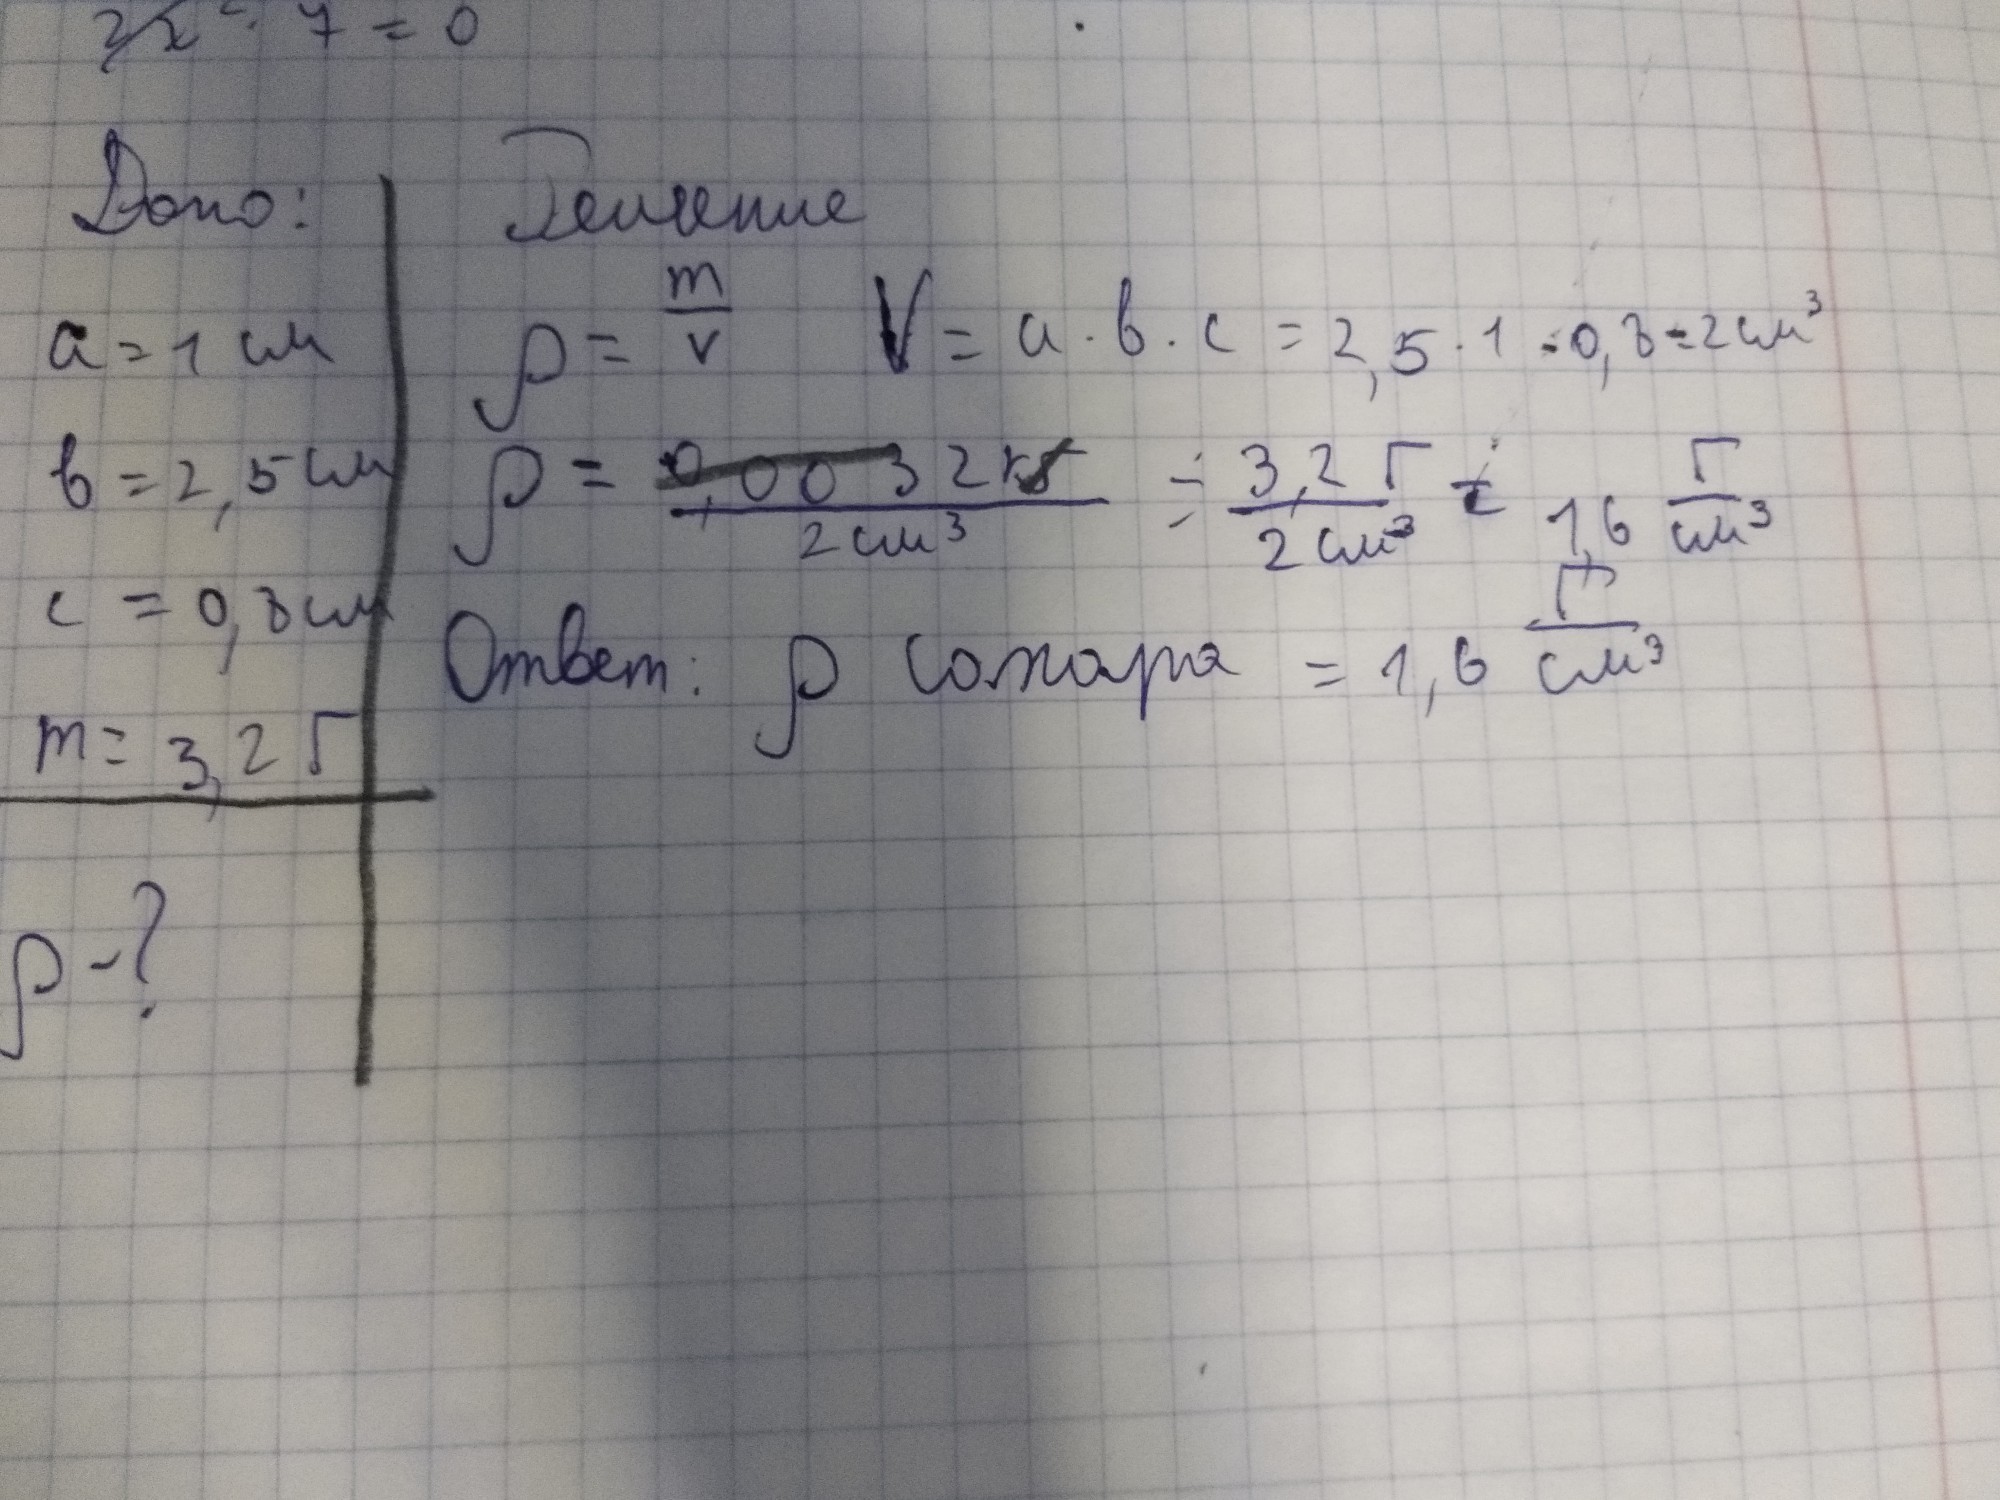 2x² · 7 = 0
Дано:
a = 1 см
b = 2,5 см
c = 0,8 см
m = 3,2 г
ρ - ?
Решение
ρ = m/v V = a · b · c = 2,5 · 1 · 0,8 = 2 см³
ρ = 0,0032 кг / 2 см³ = 3,2 г / 2 см³ = 1,6 г/см³
Ответ: ρ сахара = 1,6 г/см³